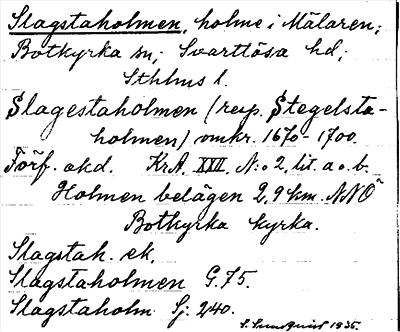 Slagstaholmen, holme i Mälaren;
Botkyrka sn; Svartlösa hd;
Sthlms l.
Slagestaholmen (resp. Stegelsta-
holmen) omkr. 1670-1700.
Förf. okd. KrA, XXII, N:o 2, lit. a o. b.
Holmen belägen 2,9 km. NNÖ
Botkyrka kyrka.
Slagstah. ek.
Slagstaholmen G.75.
Slagstaholm Sj. 240.
S. Sundquist 1935.